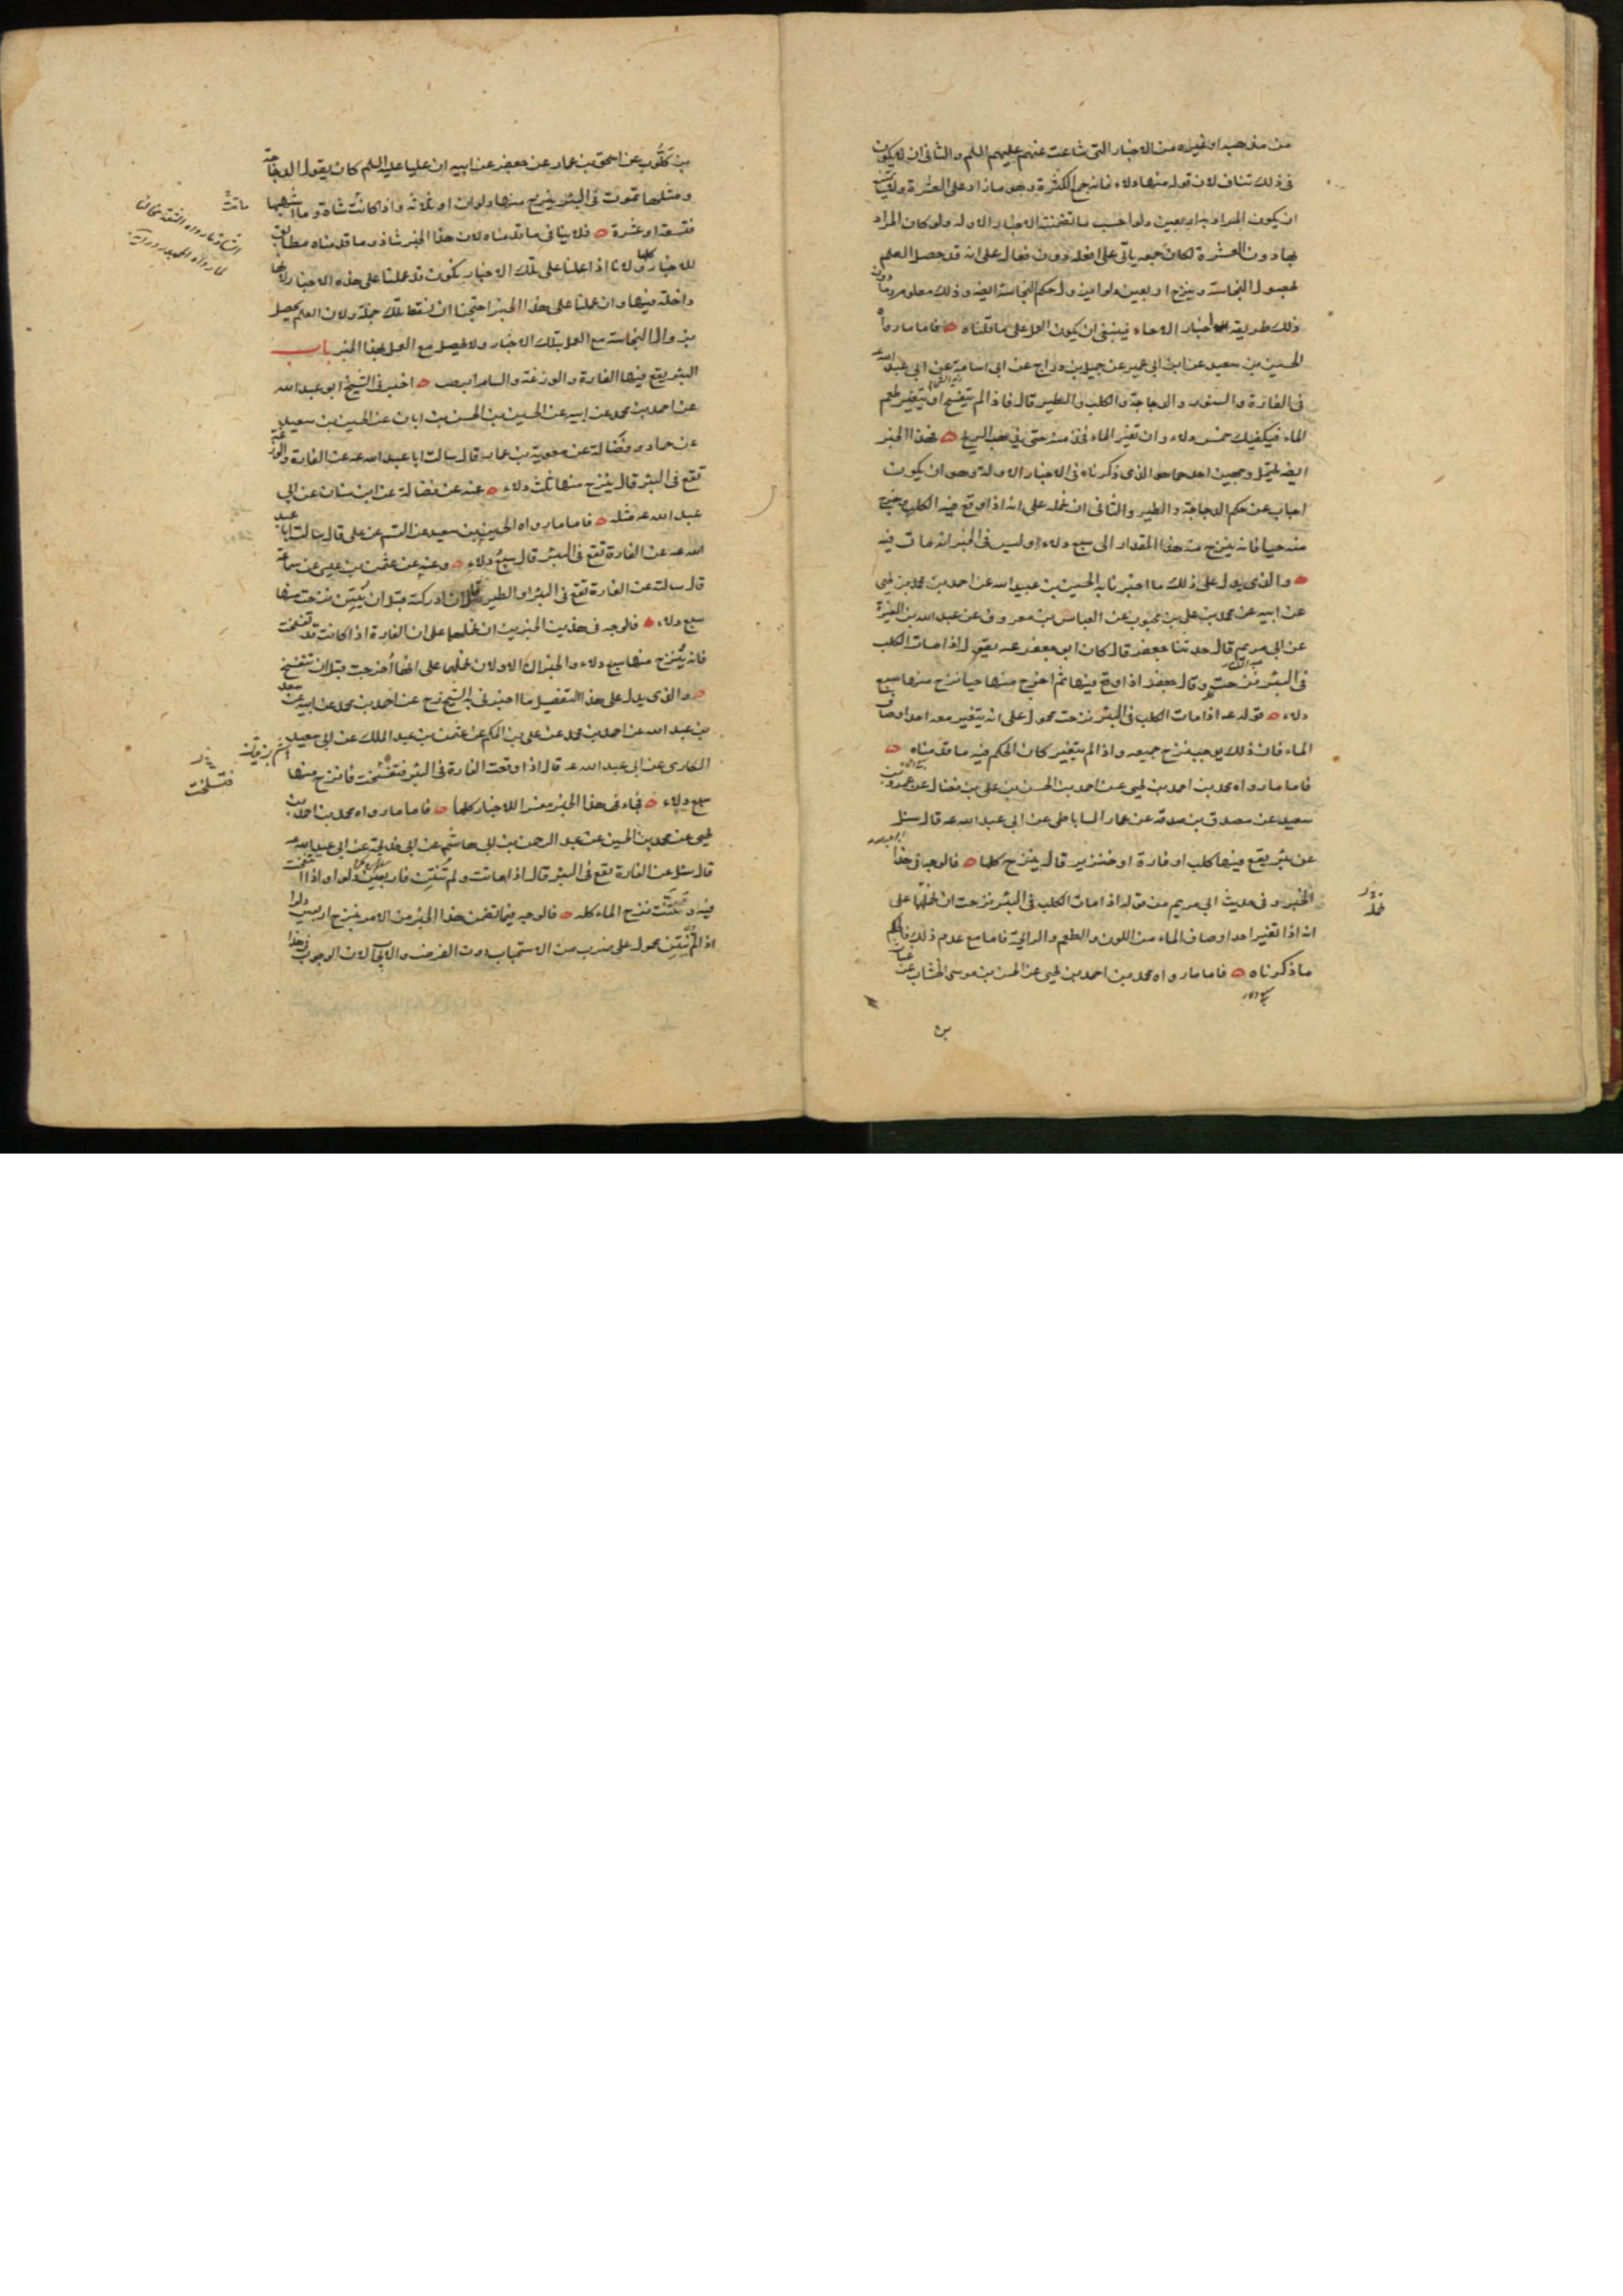 من مذهبه او غيره من الاخبار التى شاعت عنهم عليهم السلم والثانى ان لا يكون
فى ذلك تناف لان قوله منها دلاء فانه جمع الكثرة وهو ما زاد على العشرة ولا يمتنع
ان يكون المراد به اربعين دلوا حسب ما تضمنته الاخبار الاوله ولو كان المراد
بها دون العشرة لكان جمعه ياتى على افعله دون فعال على انه قد حصل العلم
بحصول النجاسة وبنزح اربعين دلوا يزول حكم النجاسة ايضه وذلك معلوم وما دون
ذلك طريقه اخبار الاحاد فينبغى ان يكون العمل على ما قلناه فاما ما رواه
الحسين بن سعيد عن ابن ابى عمير عن جميل بن دراج عن ابى اسامة عن ابى عبد الله عه
فى الفارة والسنور والدجاجة والكلب والطير قال فاذا لم يتفسخ او يتغير طعم
الماء فيكفيك خمس دلاء وان تغير الماء فخذ منه حتى يذهب الريح فهذا الخبر
ايضه يحتمل وجهين احدهما هو الذى ذكرناه فى الاخبار الاولة وهو ان يكون
اجاب عن حكم الدجاجة والطير والثانى ان نحمله على انه اذا وقع فيه الكلب وخرج
منه حيا فانه ينزح منه هذا المقدار الى سبع دلاء وليس فى الخبر انه مات فيه
والذى يدل على ذلك ما اخبرنا به الحسين بن عبيد الله عن احمد بن محمد بن يحيى
عن ابيه عن محمد بن على بن محبوب عن العباس بن معروف عن عبد الله بن المغيرة
عن ابى مريم قال حدثنا جعفر قال كان ابو جعفر عه يقول اذا مات الكلب
فى البئر نزحت وقال جعفر اذا وقع فيها ثم اخرج منها حيا نزح منها سبع
دلاء قوله عه اذا مات الكلب فى البئر نزحت محمول على انه يتغير معه احد اوصاف
الماء فان ذلك يوجب نزح جميعه واذا لم يتغير كان الحكم فيه ما قدمناه
فاما ما رواه محمد بن احمد بن يحيى عن احمد بن الحسن بن على بن فضال عن عمرو بن
سعيد عن مصدق بن صدقة عن عمار الساباطى عن ابى عبد الله عه قال سئل
عن بئر يقع فيها كلب او فارة او خنزير قال ينزح كلها فالوجه فى هذا
الخبر وفى حديث ابى مريم من قوله اذا مات الكلب فى البئر نزحت ان نحملها على
انه اذا تغير احد اوصاف الماء من اللون والطعم والرائحة فاما مع عدم ذلك فالحكم
ما ذكرناه فاما ما رواه محمد بن احمد بن يحيى عن الحسن بن موسى الخشاب عن غياث
بن
بن كلوب عن اسحق بن عمار عن جعفر عن ابيه ان عليا عليه السلم كان يقول الدجاجة
ومثلها تموت فى البئر ينزح منها دلوان او ثلاثة واذا كانت شاة وما اشبهها
فتسعة او عشرة فلا ينافى ما قدمناه لان هذا الخبر شاذ وما قدمناه مطابق
للاخبار كلها ولانا اذا عملنا على تلك الاخبار نكون قد عملنا على هذه الاخبار لانها
داخلة فيها وان عملنا على هذا الخبر احتجنا ان نسقط تلك جملة ولان العلم يحصل
بزوال النجاسة مع العمل بتلك الاخبار ولا يحصل مع العمل بهذا الخبر باب
البئر يقع فيها الفارة والوزغة والسام ابرص اخبرنى الشيخ ابو عبد الله
عن احمد بن محمد عن ابيه عن الحسين بن الحسن بن ابان عن الحسين بن سعيد
عن حماد وفضالة عن معوية بن عمار قال سالت ابا عبد الله عه عن الفارة والوزغة
تقع فى البئر قال ينزح منها ثلث دلاء عنه عن فضالة عن ابن سنان عن ابى
عبد الله عه مثله فاما ما رواه الحسين بن سعيد عن القسم عن على قال سالت ابا عبد
الله عه عن الفارة تقع فى البئر قال سبع دلاء وعنه عن عثمن بن عيسى عن سماعة
قال سالته عن الفارة تقع فى البئر او الطير قال ان ادركته قبل ان ينتن نزحت منها
سبع دلاء فالوجه فى هذين الخبرين ان نحملهما على ان الفارة اذا كانت قد تفسخت
فانه ينزح منها سبع دلاء والخبران الاولان نحملهما على انها اخرجت قبل ان تتفسخ
والذى يدل على هذا التفصيل ما اخبرنى به الشيخ رح عن احمد بن محمد عن ابيه عن سعد
بن عبد الله عن احمد بن محمد عن على بن الحكم عن عثمن بن عبد الملك عن ابى سعيد
المكارى عن ابى عبد الله عه قال اذا وقعت الفارة فى البئر فتفسخت فانزح منها
سبع دلاء فجاء فى هذا الخبر مفسرا للاخبار كلها فاما ما رواه محمد بن احمد بن
يحيى عن محمد بن الحسين عن عبد الرحمن بن ابى هاشم عن ابى خديجة عن ابى عبد الله عه
قال سئل عن الفارة تقع فى البئر قال اذا ماتت ولم تنتن فاربعين دلوا واذا انتفخت
فيه ونتنت نزح الماء كله فالوجه فيما تضمن هذا الخبر من الامر بنزح اربعين دلوا
اذا لم تنتن محمول على ضرب من الاستحباب دون الفرض والايجاب لان الوجوب فى هذا
ماتت
فتسلخت